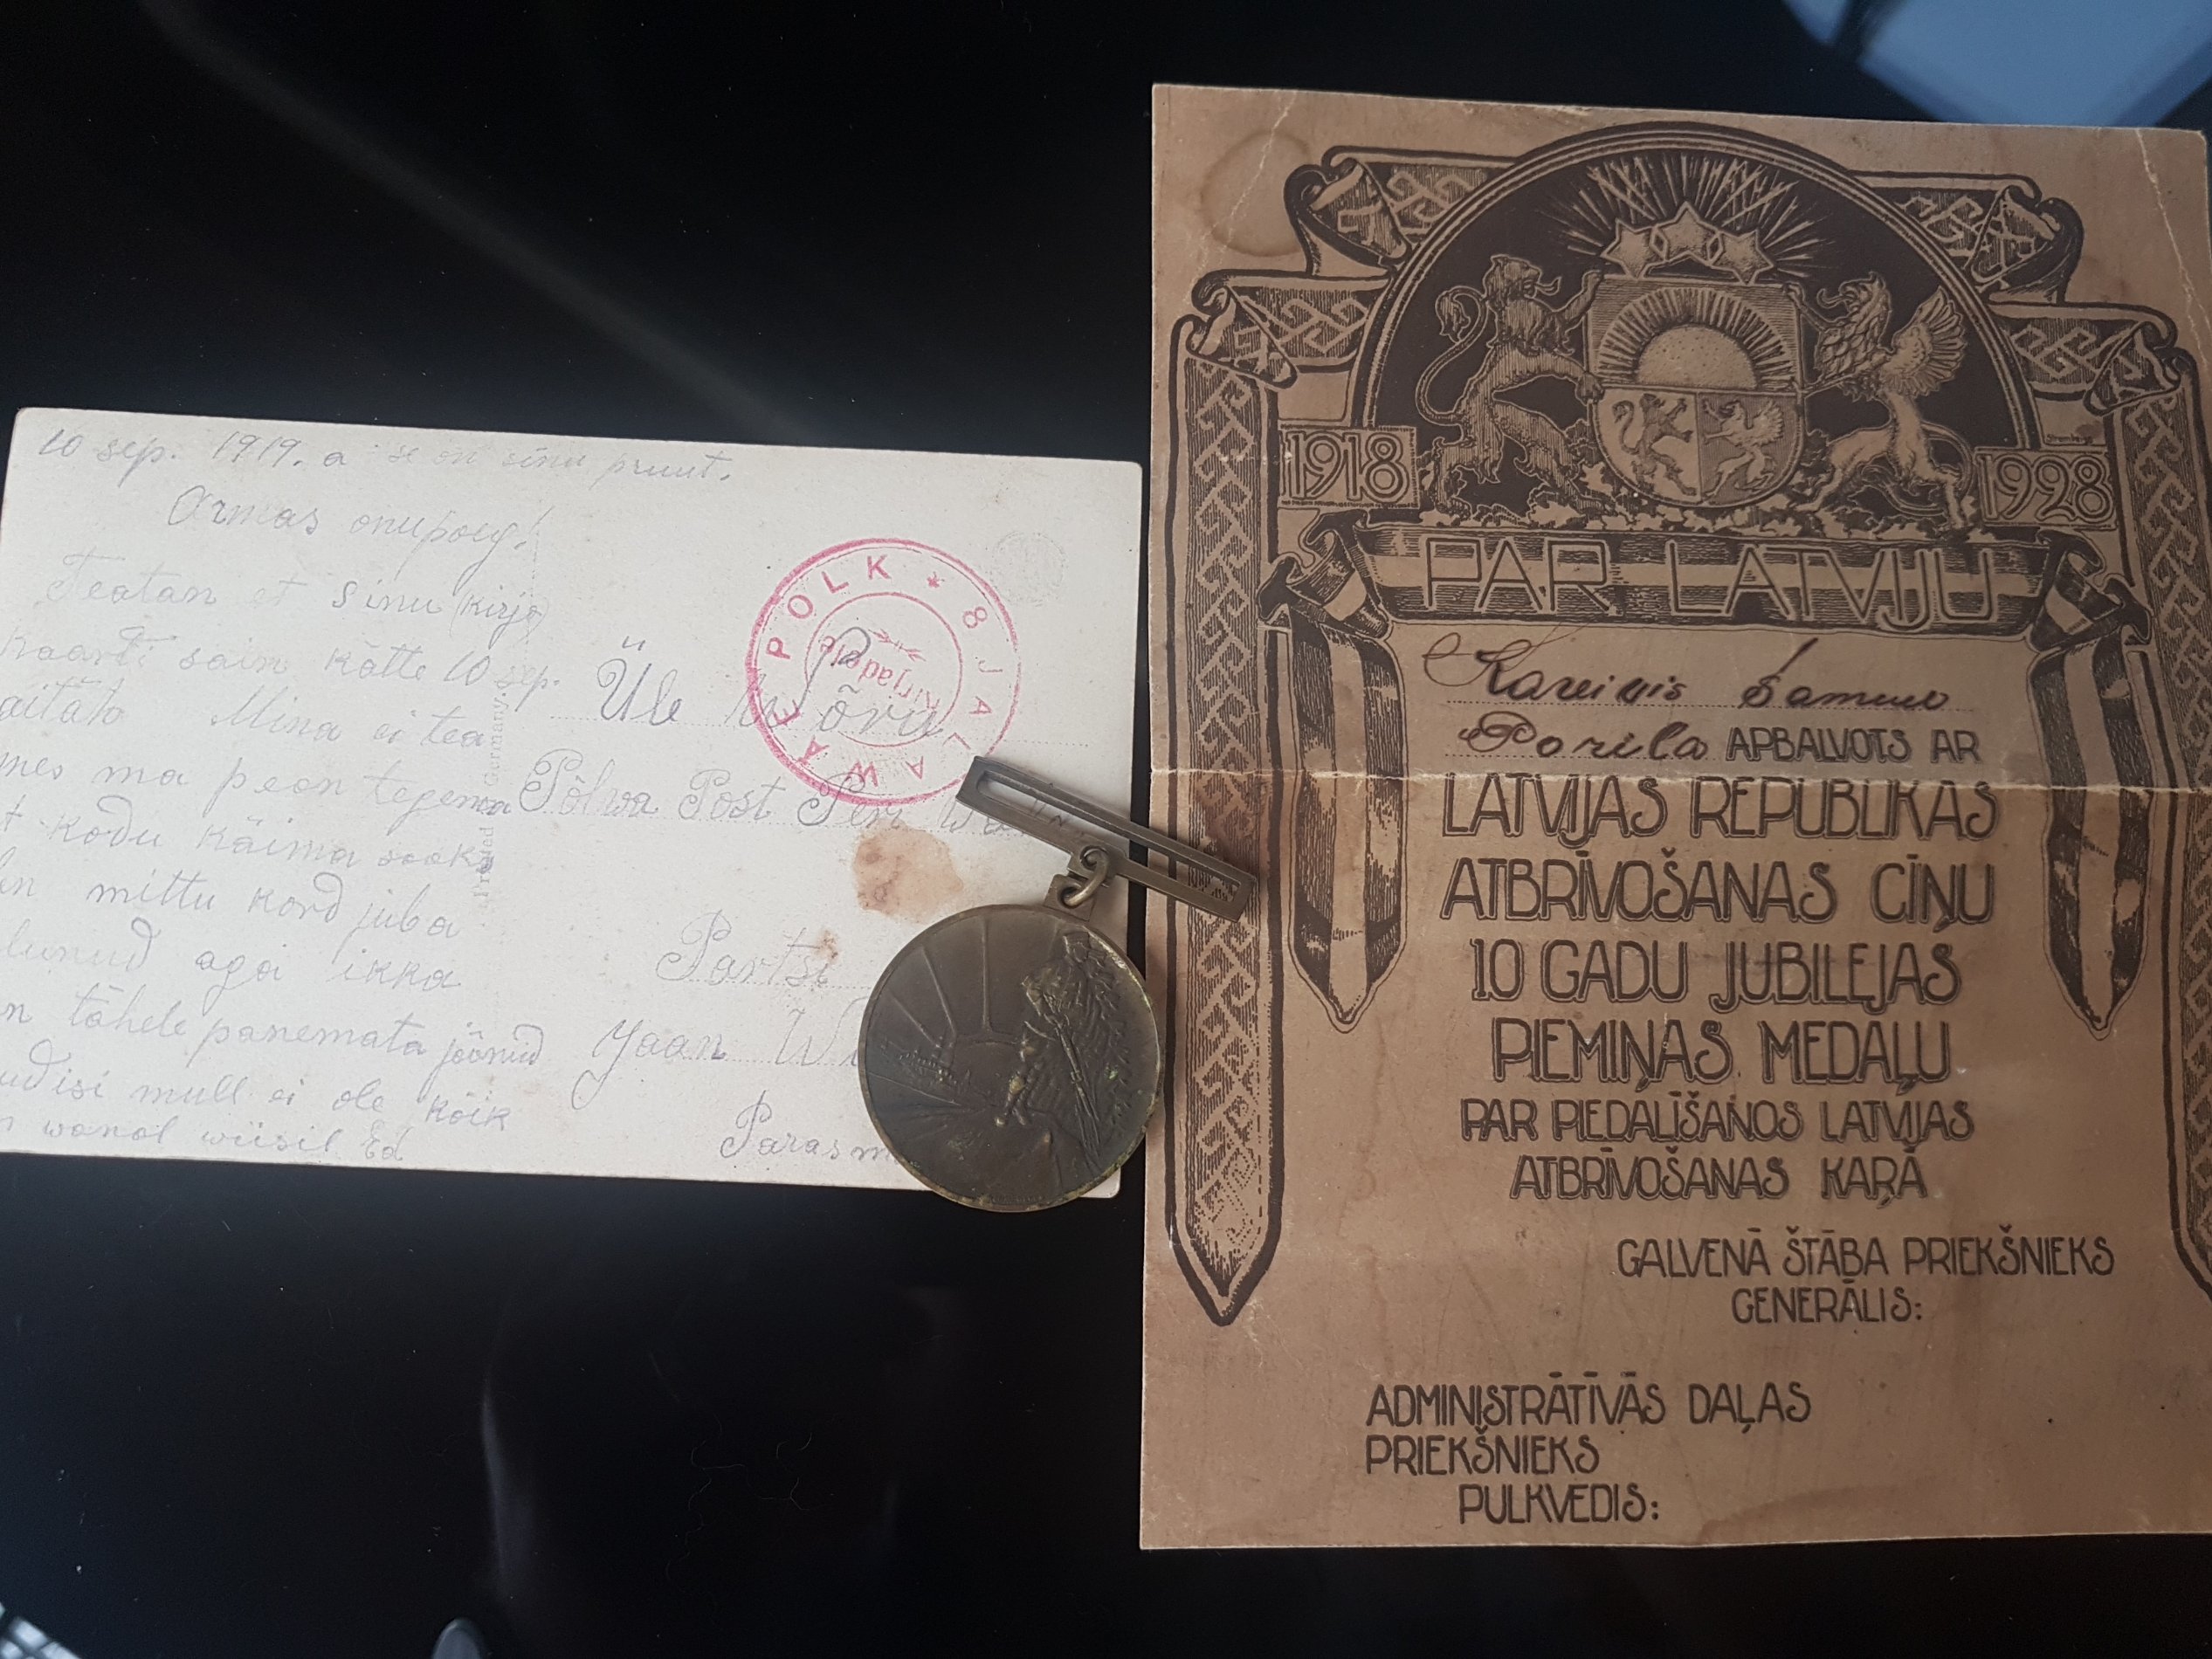 10 sep. 1919. a se on sinu pruut.
Armas onupoeg!
Teatan et sinu (kirja)
kaarti sain kätte 10 sep.
aitäh Mina ei tea
mes ma pean tegema
kodu käima
mittu kord juba
aga ikka
tähele panemata jäänud
mull ei ole kõik
wanal wiisil Ed
Printed Germany.
8 JALAWÄEPOLK *
Kirjadele
Üle Wõru
Põlwa Post
Partsi
Jaan
1918
1928
PAR LATVIJU
Kareivis
Porila APBALVOTS AR
LATVIJAS REPUBLIKAS
ATBRĪVOŠANAS CĪŅU
10 GADU JUBILEJAS
PIEMIŅAS MEDAĻU
PAR PIEDALĪŠANOS LATVIJAS
ATBRĪVOŠANAS KAŖĀ
GALVENĀ ŠTĀBA PRIEKŠNIEKS
ĢENERĀLIS:
ADMINISTRĀTĪVĀS DAĻAS
PRIEKŠNIEKS
PULKVEDIS: